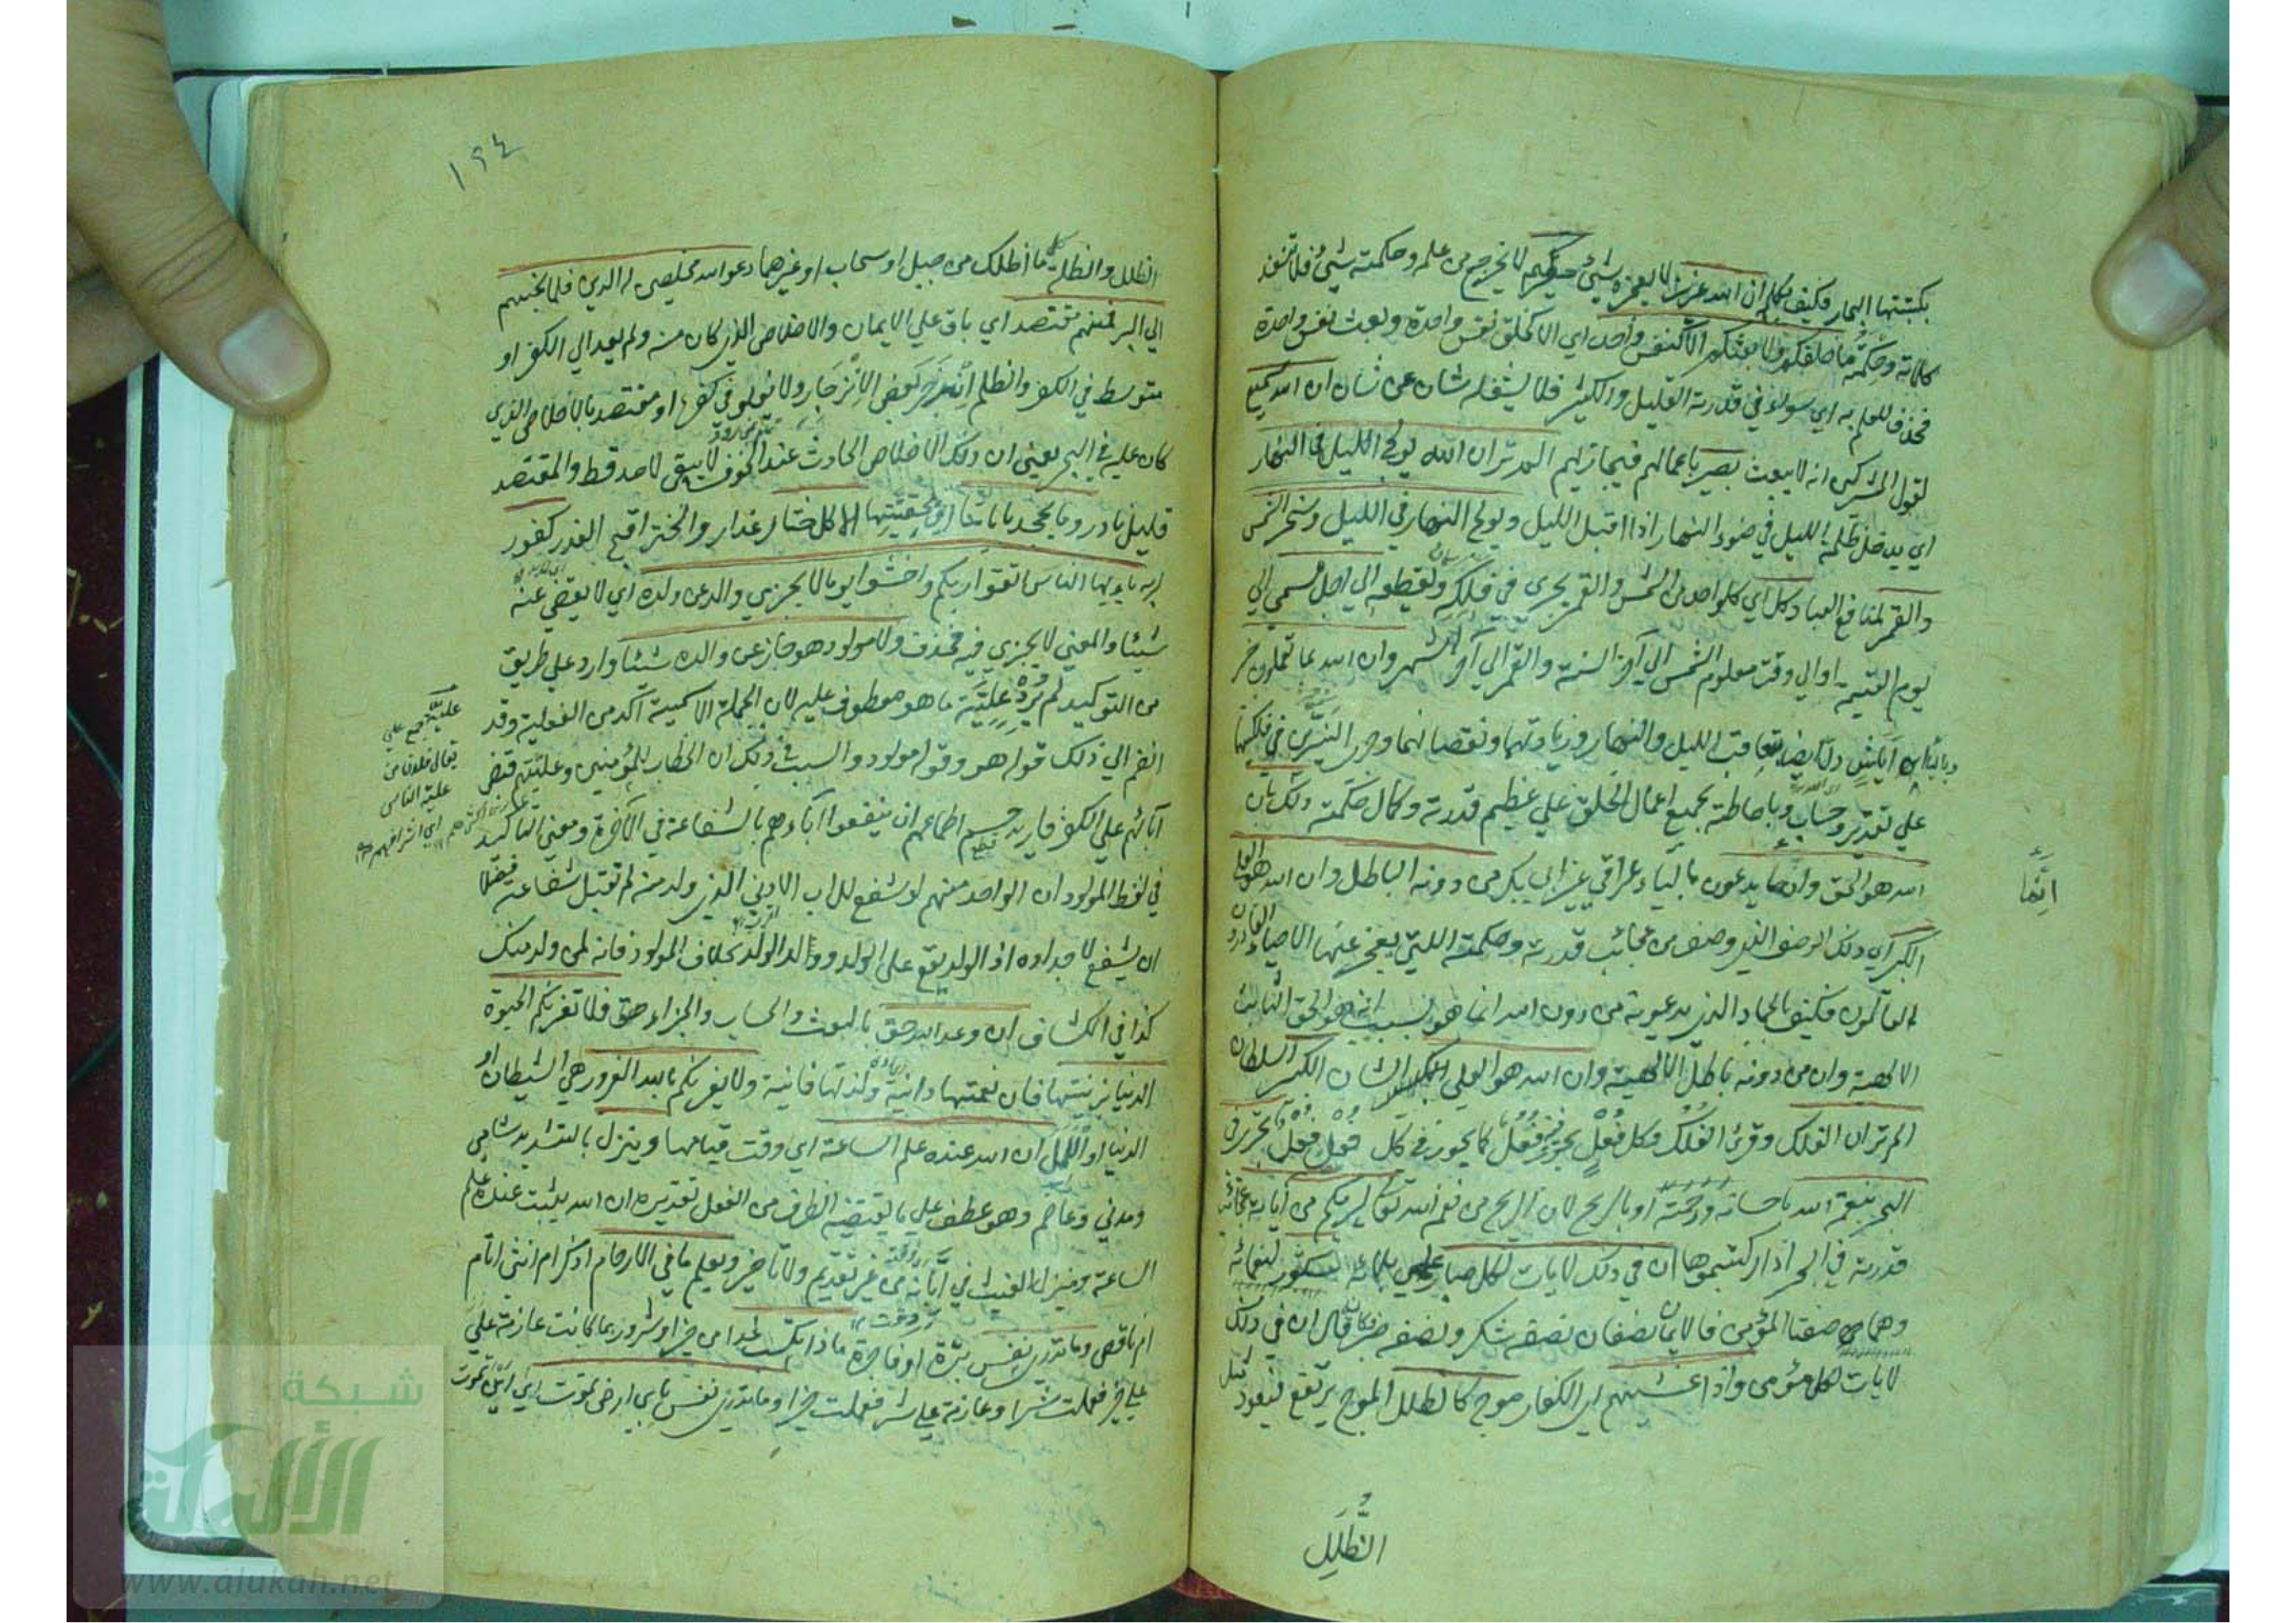 بكتبتها البحار فكيف بكلم ان الله عزيز لا يعجزه شيئ حكيم لا يخرج من علمه وحكمته شيئ فلا تنفد
كلماته وحكمته ما خلقكم ولا بعثكم الا كنفس واحدة اي الا كخلق نفس واحدة وبعث نفس واحدة
فحذف للعلم به اي سواء في قدرته القليل والكثير فلا يشغله شان عن شان ان الله سميع
لقول المشركين انه لا يبعث بصير باعمالهم فيجازيهم الم تر ان الله يولج الليل في النهار
اي يدخل ظلمة الليل في ضوء النهار اذا اقبل الليل ويولج النهار في الليل وسخر الشمس
والقمر لمنافع العباد كل اي كل واحد من الشمس والقمر يجري في فلكه ويقطعه الي اجل مسمي الي
يوم القيمة او الي وقت معلوم الشمس الي آخر السنة والقمر الي آخر الشهر وان الله بما تعملون خبير
دل ايضا بتعاقب الليل والنهار وزيادتهما ونقصانهما وجري النيرين في فلكيهما
علي تقدير وحساب وباحاطته بجميع اعمال الخلق علي عظيم قدرته وكمال حكمته ذلك بان
الله هو الحق وان ما يدعون بالياء عراقي غير ابي بكر من دونه الباطل وان الله هو العلي
الكبير اي ذلك الوصف الذي وصف من عجائب قدرته وحكمته اللتي يعجز عنها الاحياء القادرون
العالمون فكيف بالجماد الذي يدعونه من دون الله انما هو بسبب انه هو الحق الثابت
الالهية وان من دونه باطل الالهية وان الله هو العلي الشان الكبير السلطان
الم تر ان الفلك وقرئ الفلك وكل فعل يجوز فيه فعل كما يجوز في كل فعل فعل تجري في
البحر بنعمة الله باحسانه ورحمته او بالريح لان الريح من نعم الله تعالي ليريكم من آياته عجائب
قدرته في البحر اذا ركبتموها ان في ذلك لايات لكل صبار علي بلائه شكور لنعمائه
وهما صفتا المؤمن فالايمان نصفان نصفه شكر ونصفه صبر فكانه قال ان في ذلك
لايات لكل مؤمن واذا غشيهم اي الكفار موج كالظلل الموج يرتفع فيعود
انما
الظلل
١٩٤
الظلل والظلة كل ما اظلك من جبل او سحاب او غيرهما دعوا الله مخلصين له الدين فلما نجيهم
الي البر فمنهم مقتصد اي باق علي الايمان والاخلاص الذي كان منه ولم يعد الي الكفر او
متوسط في الكفر والظلم انزجر بعض الانزجار ولا يغلو في كفره او مقتصد بالاخلاص الذي
كان عليه في البحر يعني ان ذلك الاخلاص الحادث عند الخوف لا يبقي لاحد قط والمقتصد
قليل نادر وما يجحد باياتنا اي بحقيتها الا كل ختار غدار والختر اقبح الغدر كفور
بربه يا ايها الناس اتقوا ربكم واخشوا يوما لا يجزي والد عن ولده اي لا يقضي عنه
شيئا والمعني لا يجزي فيه فحذف ولا مولود هو جاز عن والده شيئا وارد علي طريق
من التوكيد لم يرد عليه ما هو معطوف عليه لان الجملة الاسمية اكد من الفعلية وقد
انضم الي ذلك قوله هو وقوله مولود والسبب في ذلك ان الخطاب للمؤمنين وعليتهم قبض
آباؤهم علي الكفر فاريد حسم اطماعهم ان ينفعوا آباءهم بالشفاعة في الآخرة ومعني التاكيد
في لفظ المولود ان الواحد منهم لو شفع للاب الادني الذي ولد منه لم تقبل شفاعته فضلا
ان يشفع لاجداده اذ الولد يقع علي الولد وولد الولد بخلاف المولود فانه لمن ولد منك
كذا في الكشاف ان وعد الله حق بالبعث والحساب والجزاء حق فلا تغرنكم الحيوة
الدنيا بزينتها فان نعمتها دانية ولذتها فانية ولا يغرنكم بالله الغرور هي الشيطان او
الدنيا او الامل ان الله عنده علم الساعة اي وقت قيامها وينزل بالتشديد شامي
ومدني وعاصم وهو عطف علي ما يقتضيه الظرف من الفعل تقديره ان الله يثبت عنده علم
الساعة وينزل الغيث في ابانه من غير تقديم ولا تاخير ويعلم ما في الارحام اذكر ام انثي اتام
ام ناقص وما تدري نفس برة او فاجرة ماذا تكسب غدا من خير او شر وربما كانت عازمة علي
علي خير فعملت شرا وعازمة علي شر فعملت خيرا وما تدري نفس باي ارض تموت اي اين تموت
علية جمع علي
يقال فلان من
علية الناس
اي اشرافهم
شبكة
الألوكة
www.alukah.net